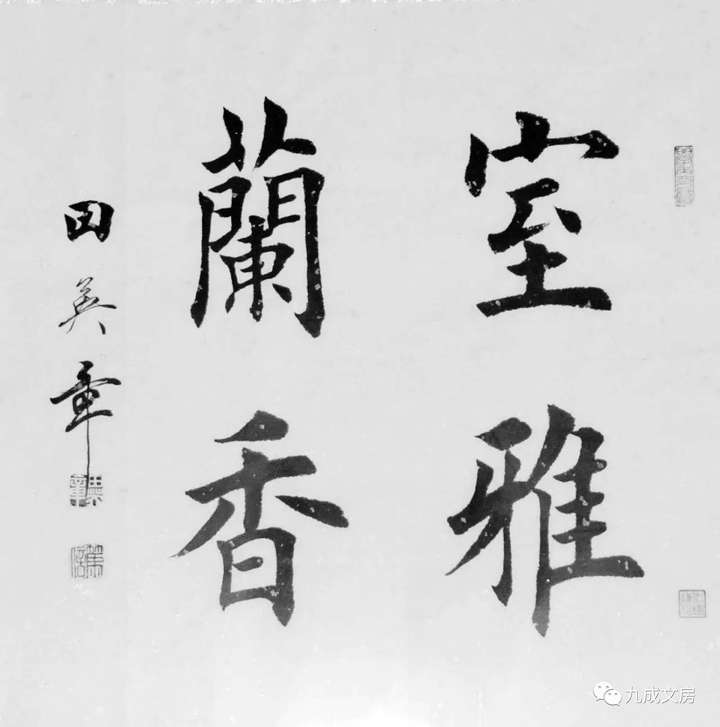 室雅
蘭香
田英章
九成文房